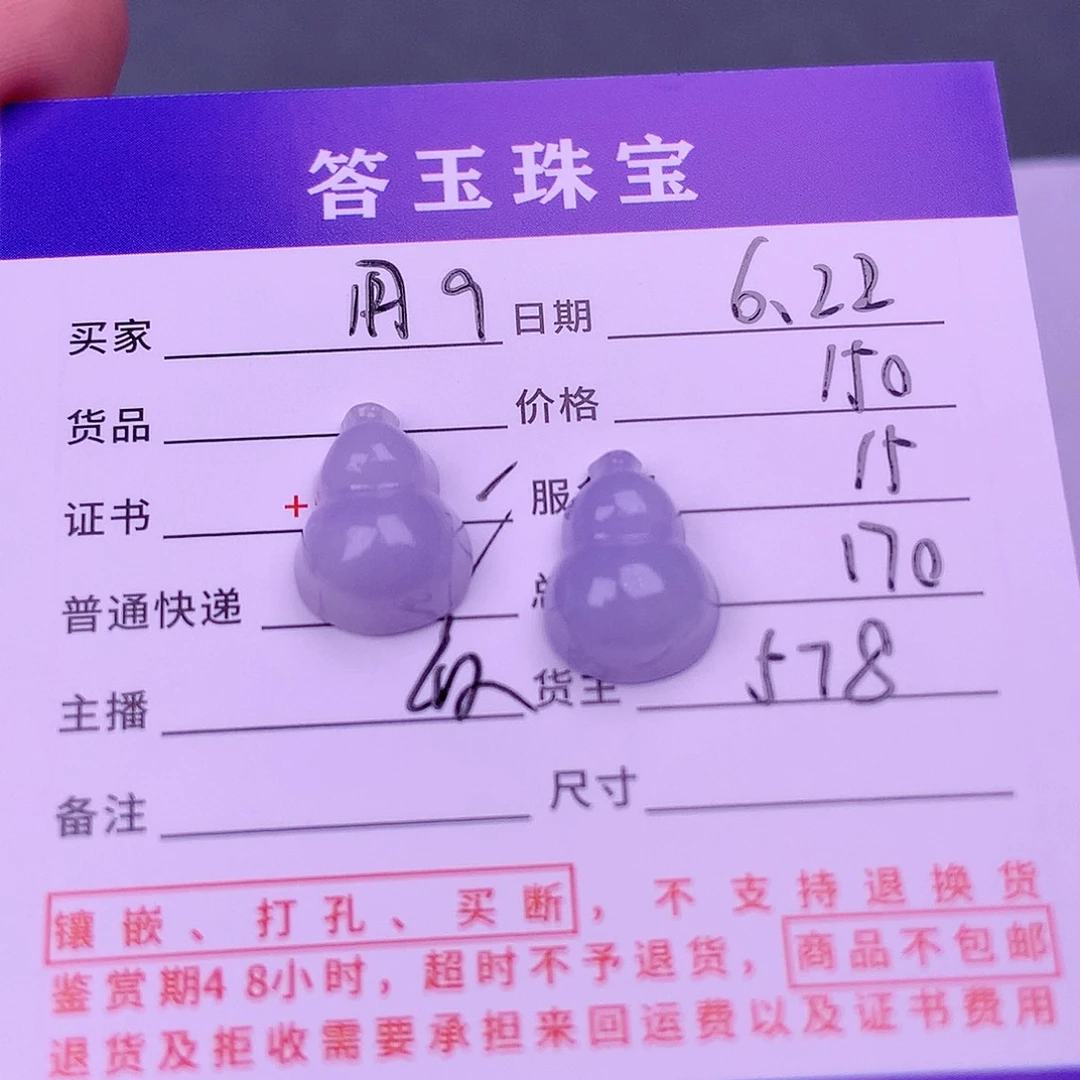 答玉珠宝
买家 用9 日期 6.22
货品 价格 150
证书 服 15
普通快递 总 170
主播 货主 578
备注 尺寸
镶嵌、打孔、买断，不支持退换货
鉴赏期48小时，超时不予退货，商品不包邮
退货及拒收需要承担来回运费以及证书费用